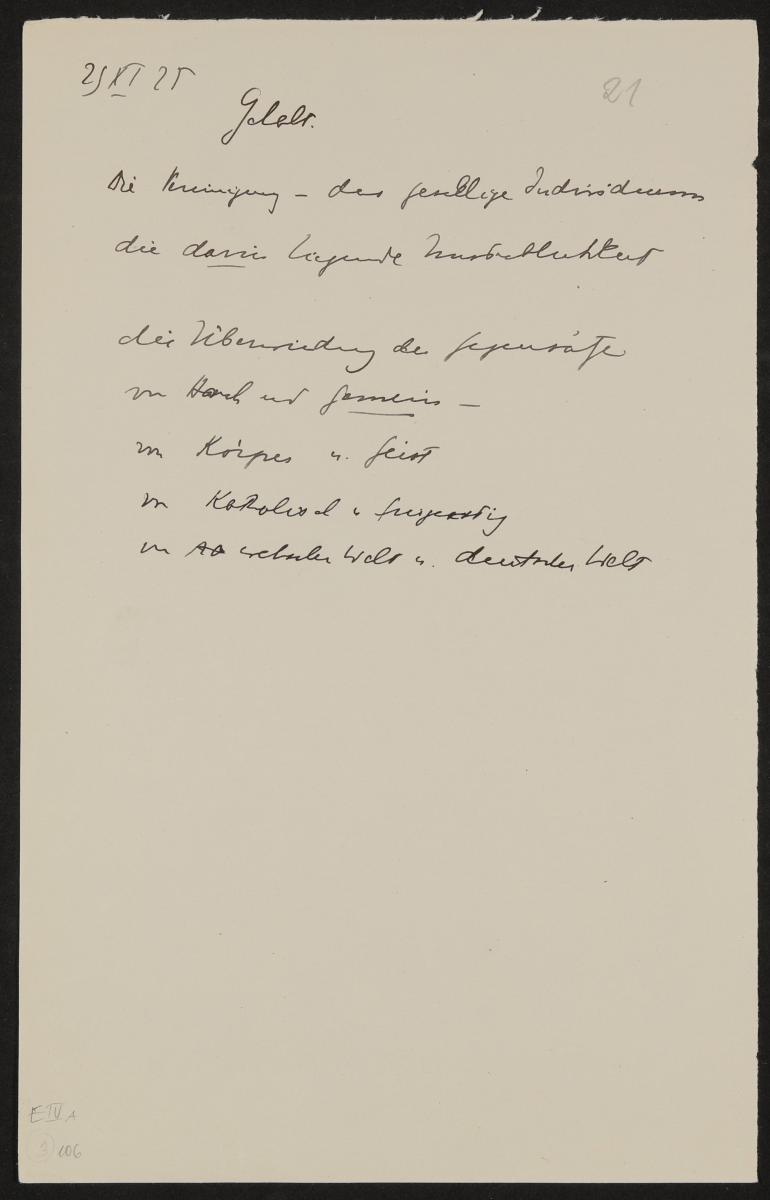 25 XI 25
21
Die Vereinigung – das gesellige Individuum
die darin liegende Unsterblichkeit
die Überwindung der Gegensätze
von Hoch und Gemein –
von Körper u. Geist
von Katholisch u freigeistig
von welscher Welt u. deutscher Welt
E IV A
3 106